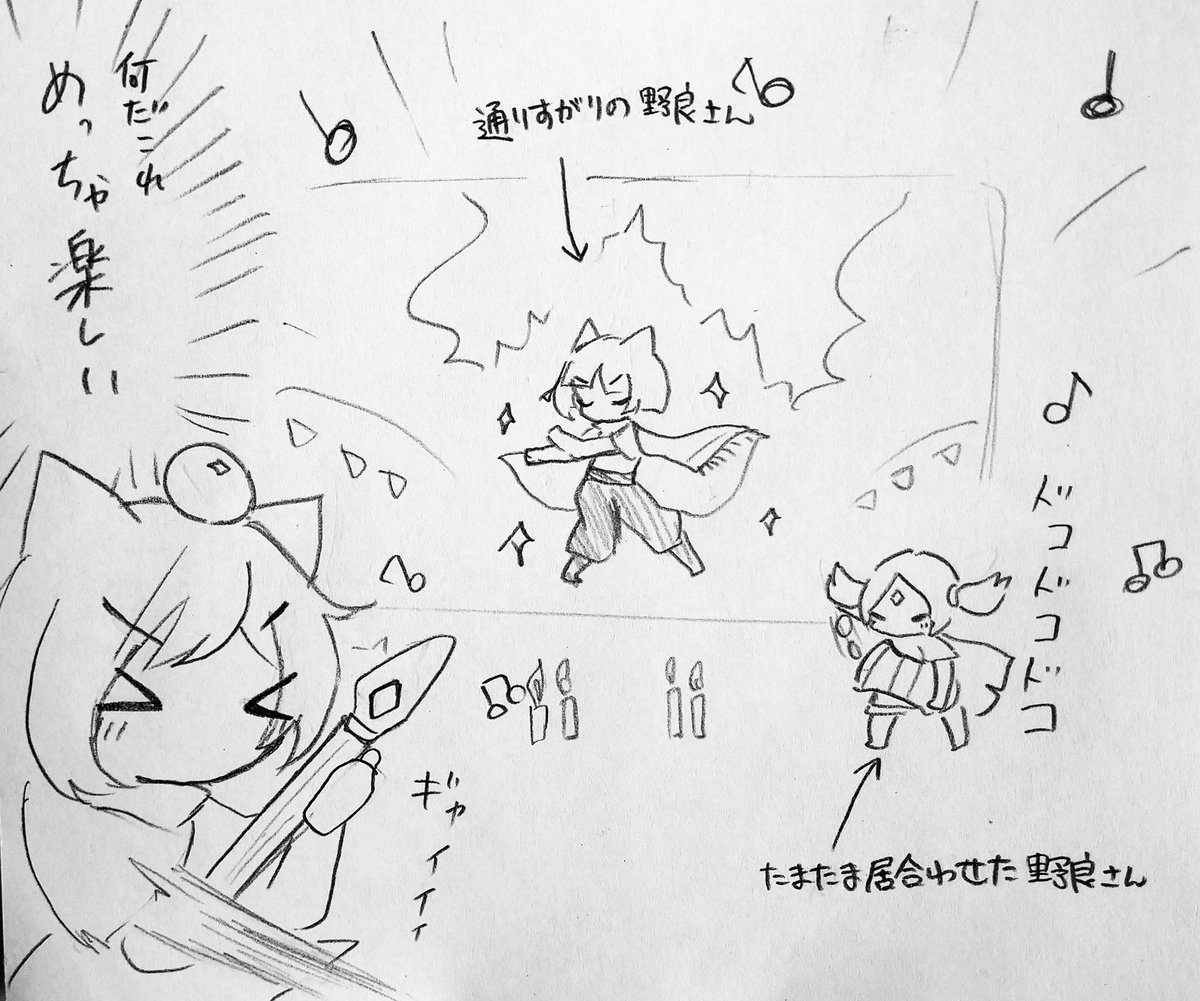 何だこれ
めっちゃ楽しい
通りすがりの野良さん
ドコドコドコ
ギャイイイ
たまたま居合わせた野良さん